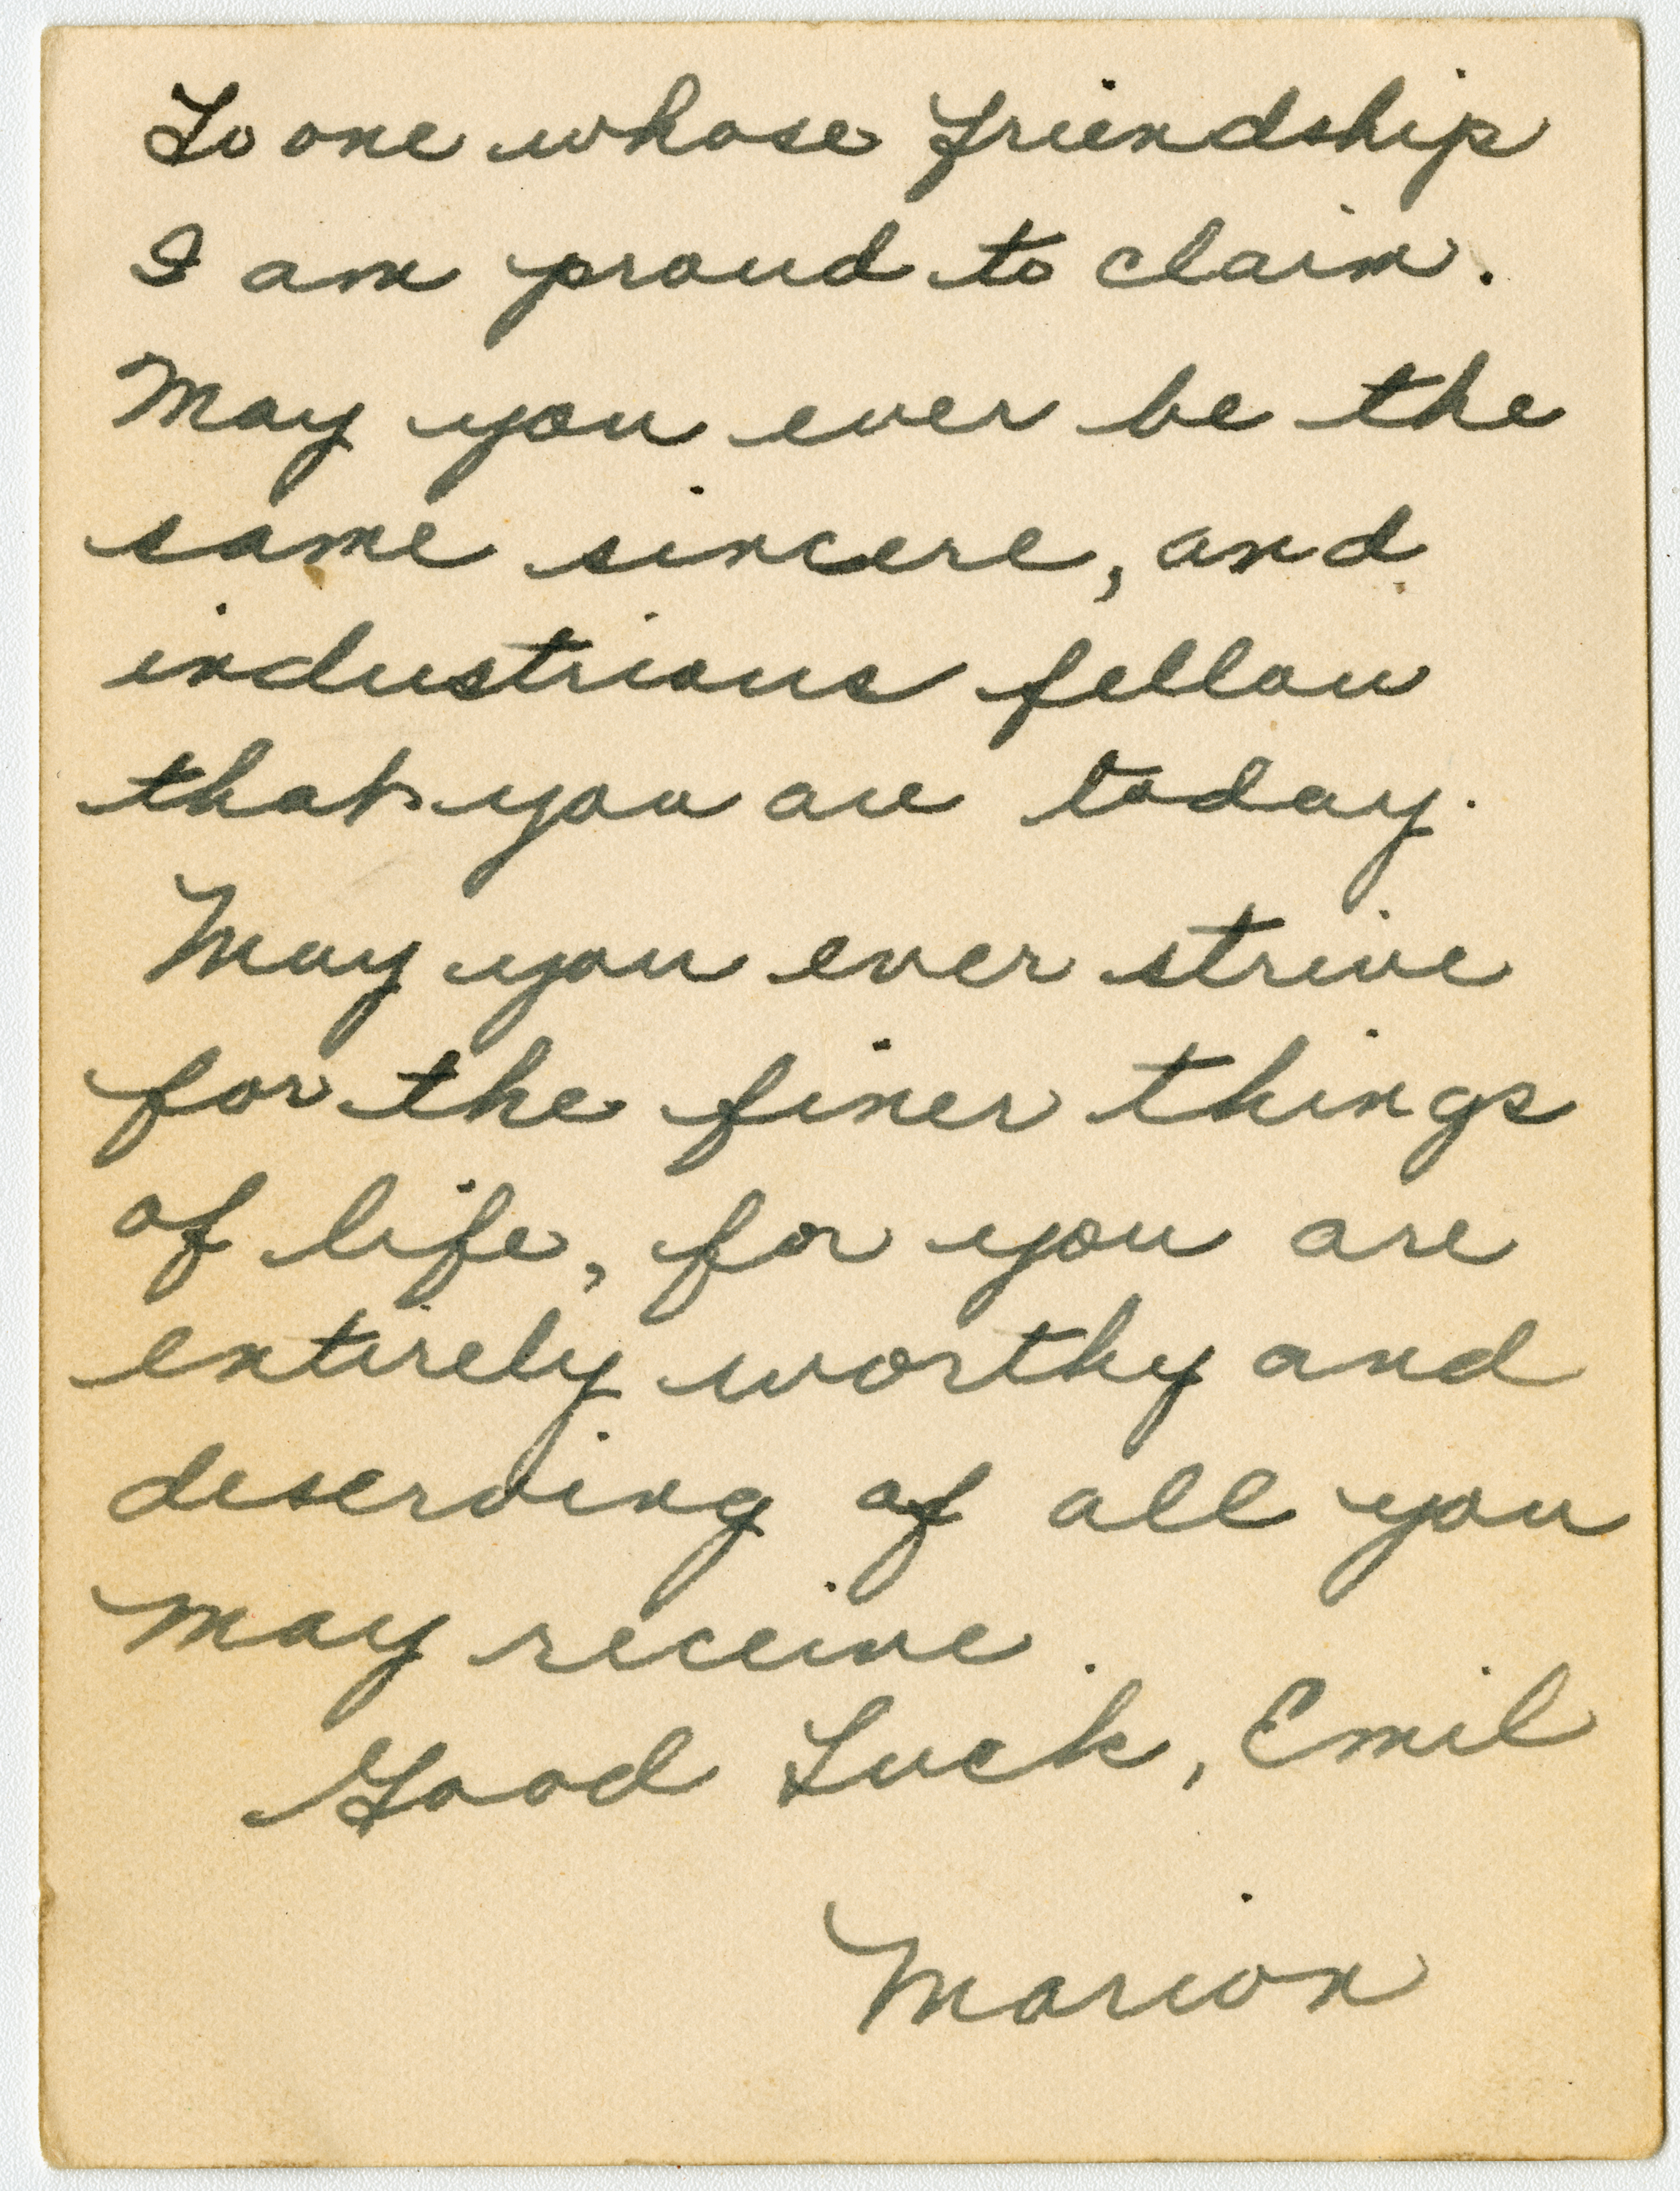 To one whose friendship
I am proud to claim.
May you ever be the
same sincere, and
industrious fellow
that you are today.
May you ever strive
for the finer things
of life, for you are
entirely worthy and
deserving of all you
may receive.
Good Luck, Emil
Marion